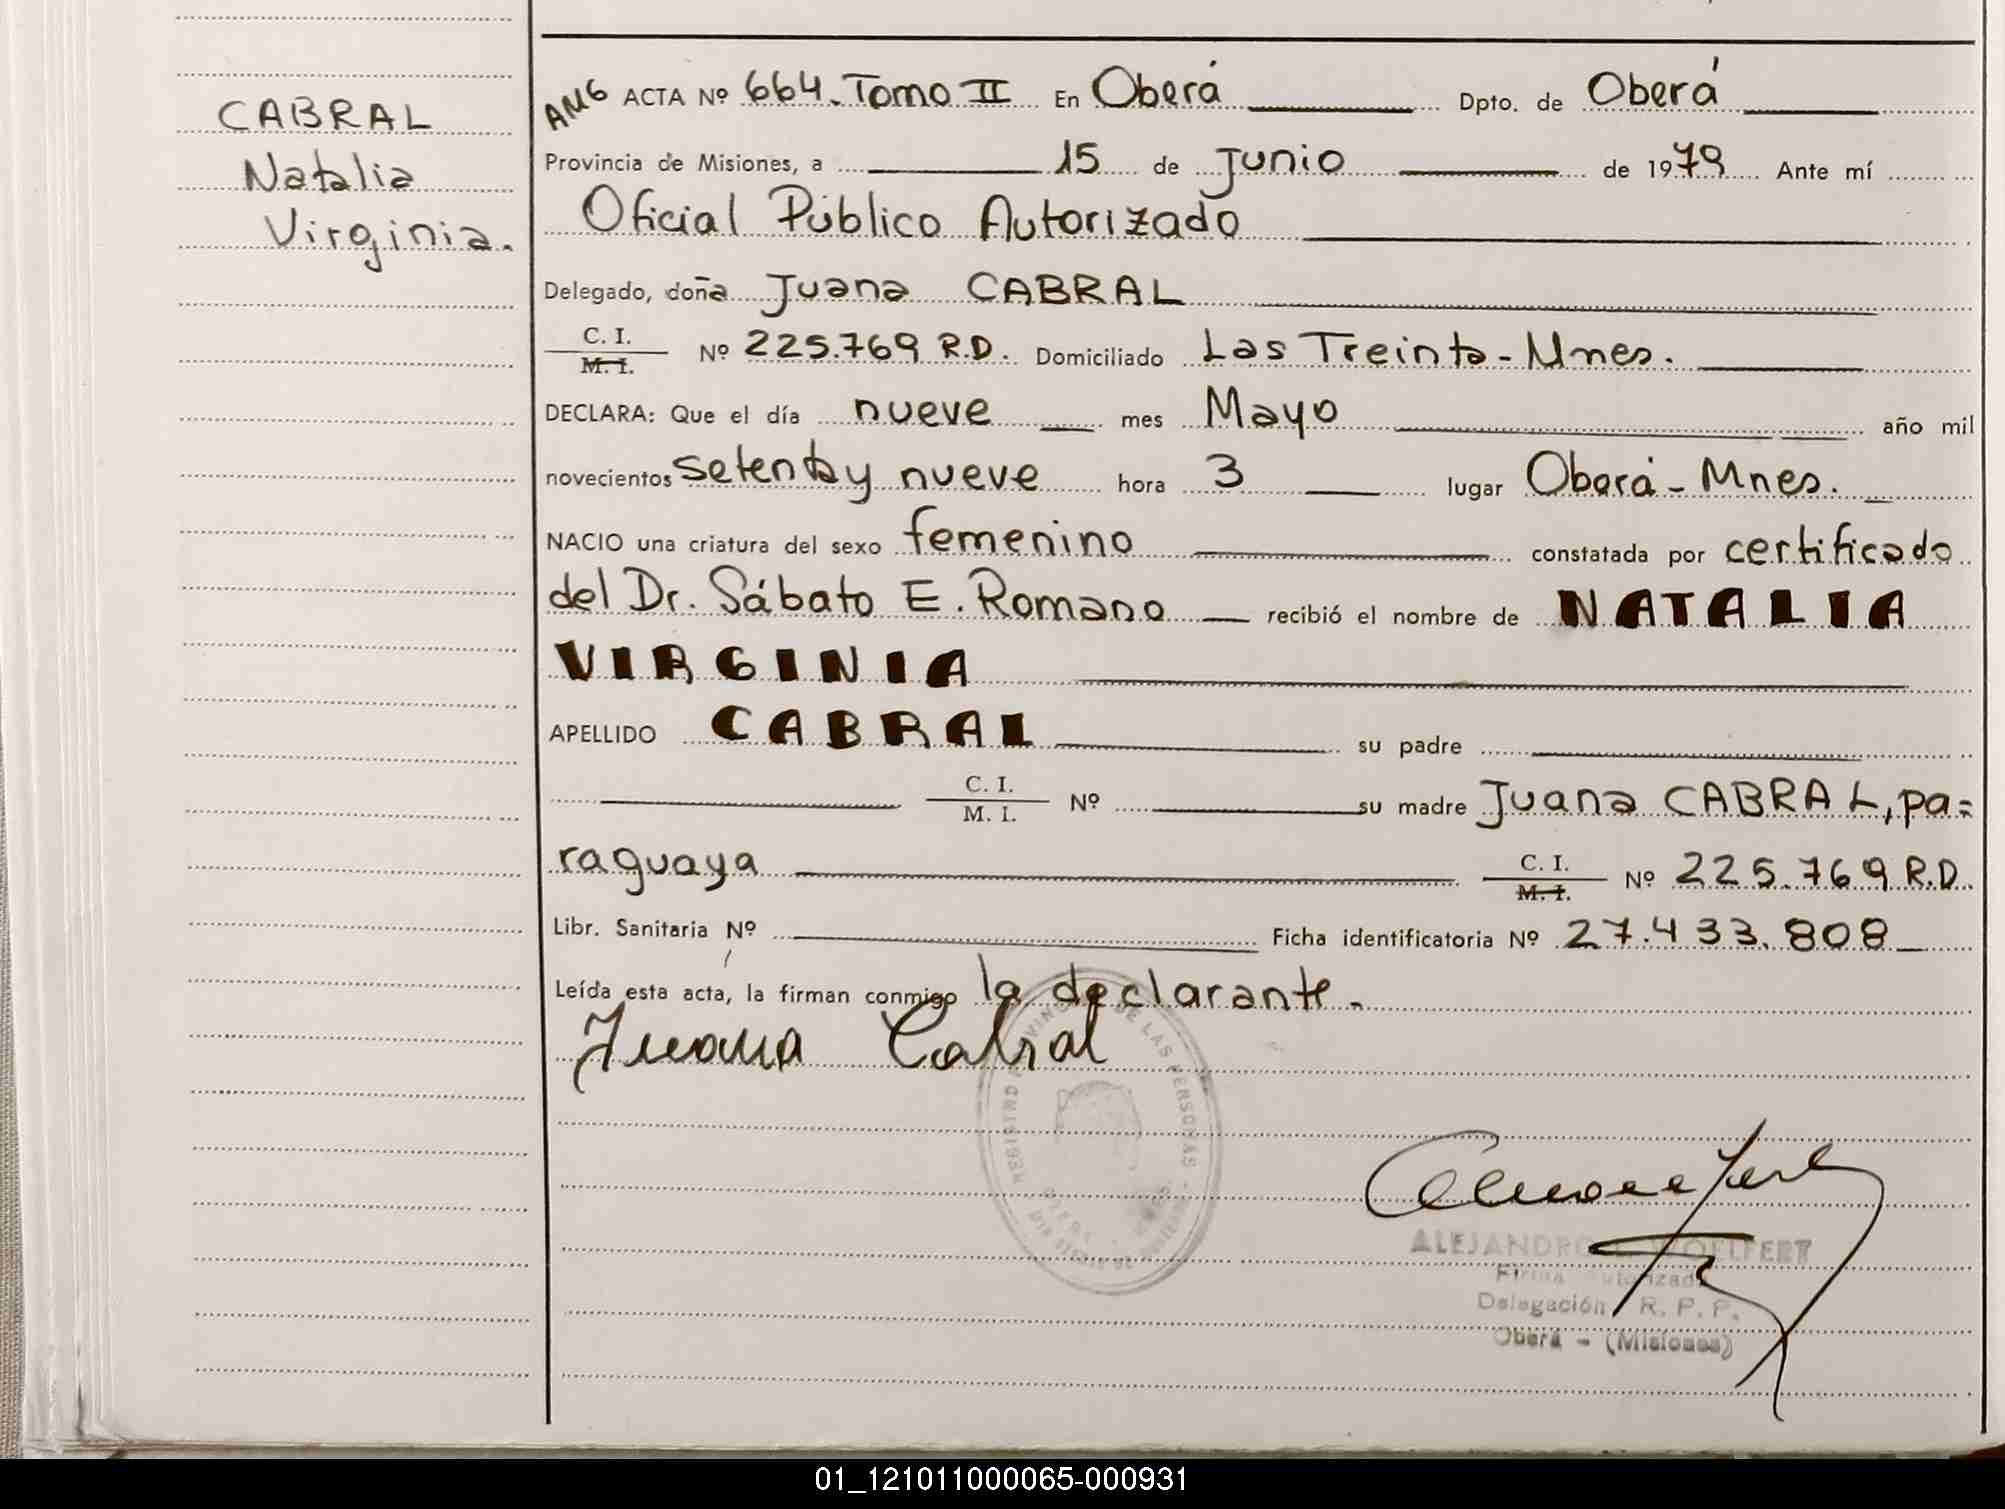 CABRAL
Natalia
Virginia.
AMG ACTA Nº 664. Tomo II En Oberá Dpto. de Oberá
Provincia de Misiones, a 15 de Junio de 1979 Ante mí
Oficial Público Autorizado
Delegado, doña Juana CABRAL
C. I.
M. I. Nº 225.769 R.D. Domiciliado Las Treinta - Mnes.
DECLARA: Que el día nueve mes Mayo año mil
novecientos setenta y nueve hora 3 lugar Oberá - Mnes.
NACIO una criatura del sexo femenino constatada por certificado
del Dr. Sábato E. Romano recibió el nombre de NATALIA
VIRGINIA
APELLIDO CABRAL su padre
C. I.
M. I. Nº su madre Juana CABRAL, pa=
raguaya C. I.
M. I. Nº 225.769 R.D.
Libr. Sanitaria Nº Ficha identificatoria Nº 27.433.808
Leída esta acta, la firman conmigo la declarante.
Juana Cabral
REGISTRO PROVINCIAL DE LAS PERSONAS
ALEJANDRO WOELFERT
Firma Autorizada
Delegación R. P. P.
Oberá - (Misiones)
01_121011000065-000931